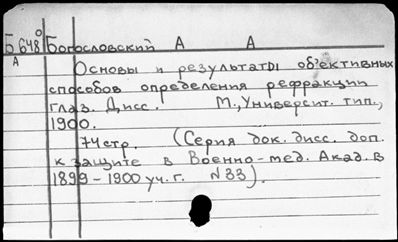 Б 648⁰ Богословский А А
А Основы и результаты объективных
способов определения рефракции
глаз. Дисс. М., Университ. тип.,
1900.
74 стр. (Серия док. дисс. доп.
к защите в Военно-мед. Акад. в
1899-1900 уч. г. N 33).